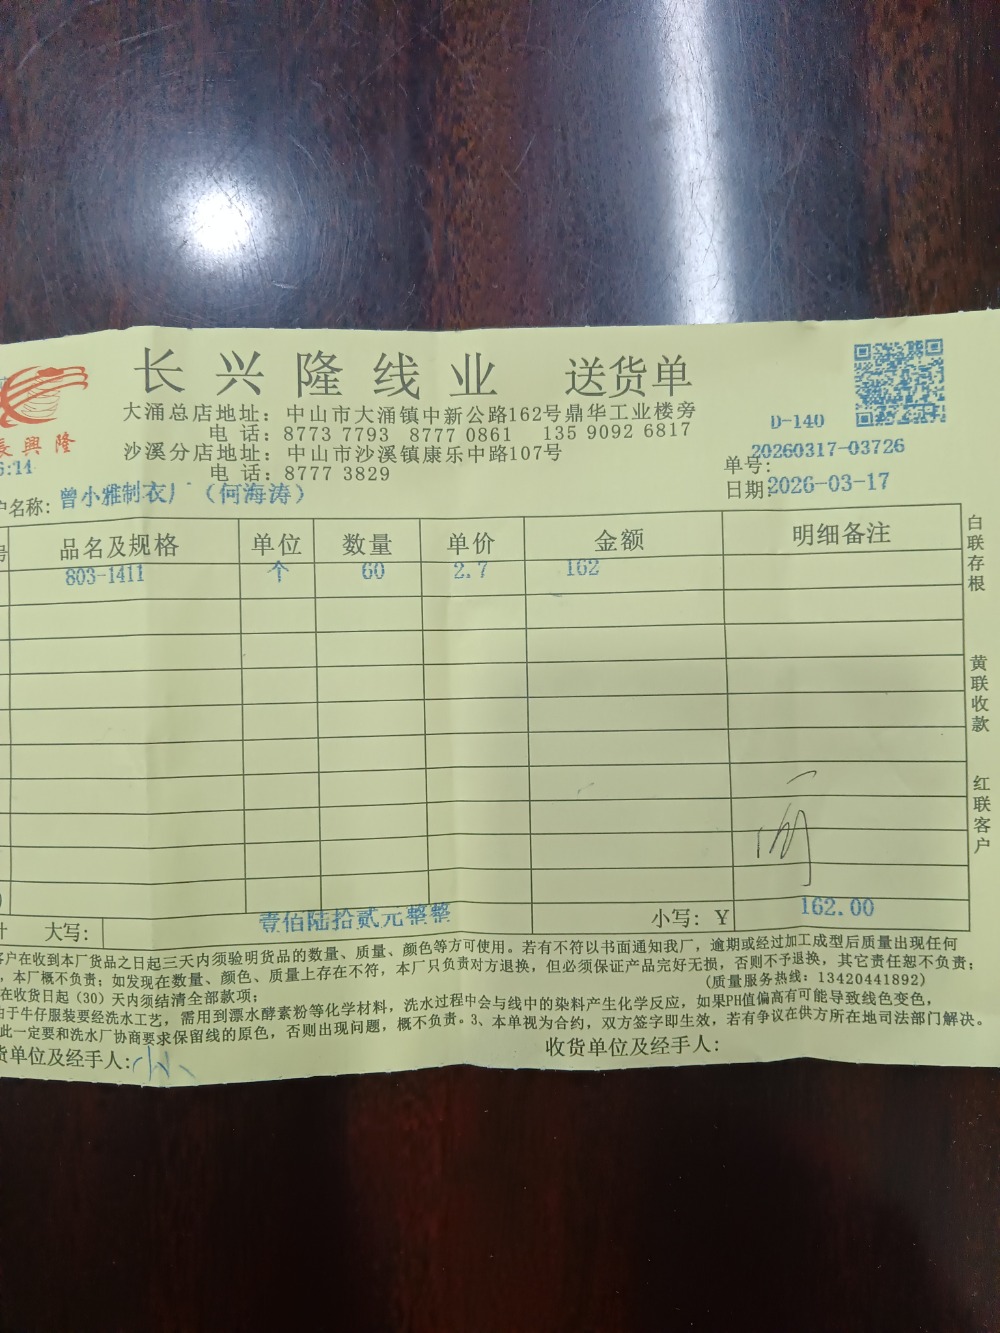 长兴隆线业 送货单
大涌总店地址：中山市大涌镇中新公路162号鼎华工业楼旁
电 话：8773 7793 8777 0861 135 9092 6817
D-140
沙溪分店地址：中山市沙溪镇康乐中路107号
長興隆
电 话：8777 3829
单号：20260317-03726
6:14
日期：2026-03-17
户名称：曾小雅制衣厂（何海涛）
号 品名及规格 单位 数量 单价 金额 明细备注
803-1411 个 60 2.7 162
白联存根
黄联收款
红联客户
计 大写： 壹佰陆拾贰元整整 小写：￥ 162.00
客户在收到本厂货品之日起三天内须验明货品的数量、质量、颜色等方可使用。若有不符以书面通知我厂，逾期或经过加工成型后质量出现任何
，本厂概不负责；如发现在数量、颜色、质量上存在不符，本厂只负责对方退换，但必须保证产品完好无损，否则不予退换，其它责任恕不负责；
在收货日起（30）天内须结清全部款项； (质量服务热线：13420441892)
由于牛仔服装要经洗水工艺，需用到漂水酵素粉等化学材料，洗水过程中会与线中的染料产生化学反应，如果PH值偏高有可能导致线色变色，
此一定要和洗水厂协商要求保留线的原色，否则出现问题，概不负责。3、本单视为合约，双方签字即生效，若有争议在供方所在地司法部门解决。
货单位及经手人： 收货单位及经手人：